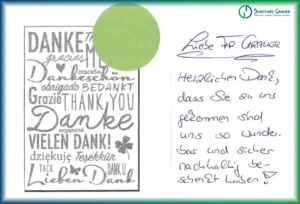 DANKE
gracias
Dankeschön
obrigado BEDANKT
Grazie THANK YOU
Danke
VIELEN DANK!
dziękuję Teşekkür
TACK
Lieben Dank
Liebe Fr. GRAUER
Herzlichen Dank,
dass Sie zu uns
gekommen sind
uns so wunder-
bar und sicher
nachhaltig be-
schenkt haben!